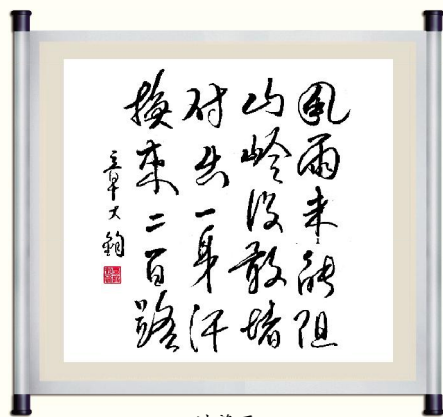 风雨未能阻
山岭没敢堵
付出一身汗
换来二百路
立早大钧